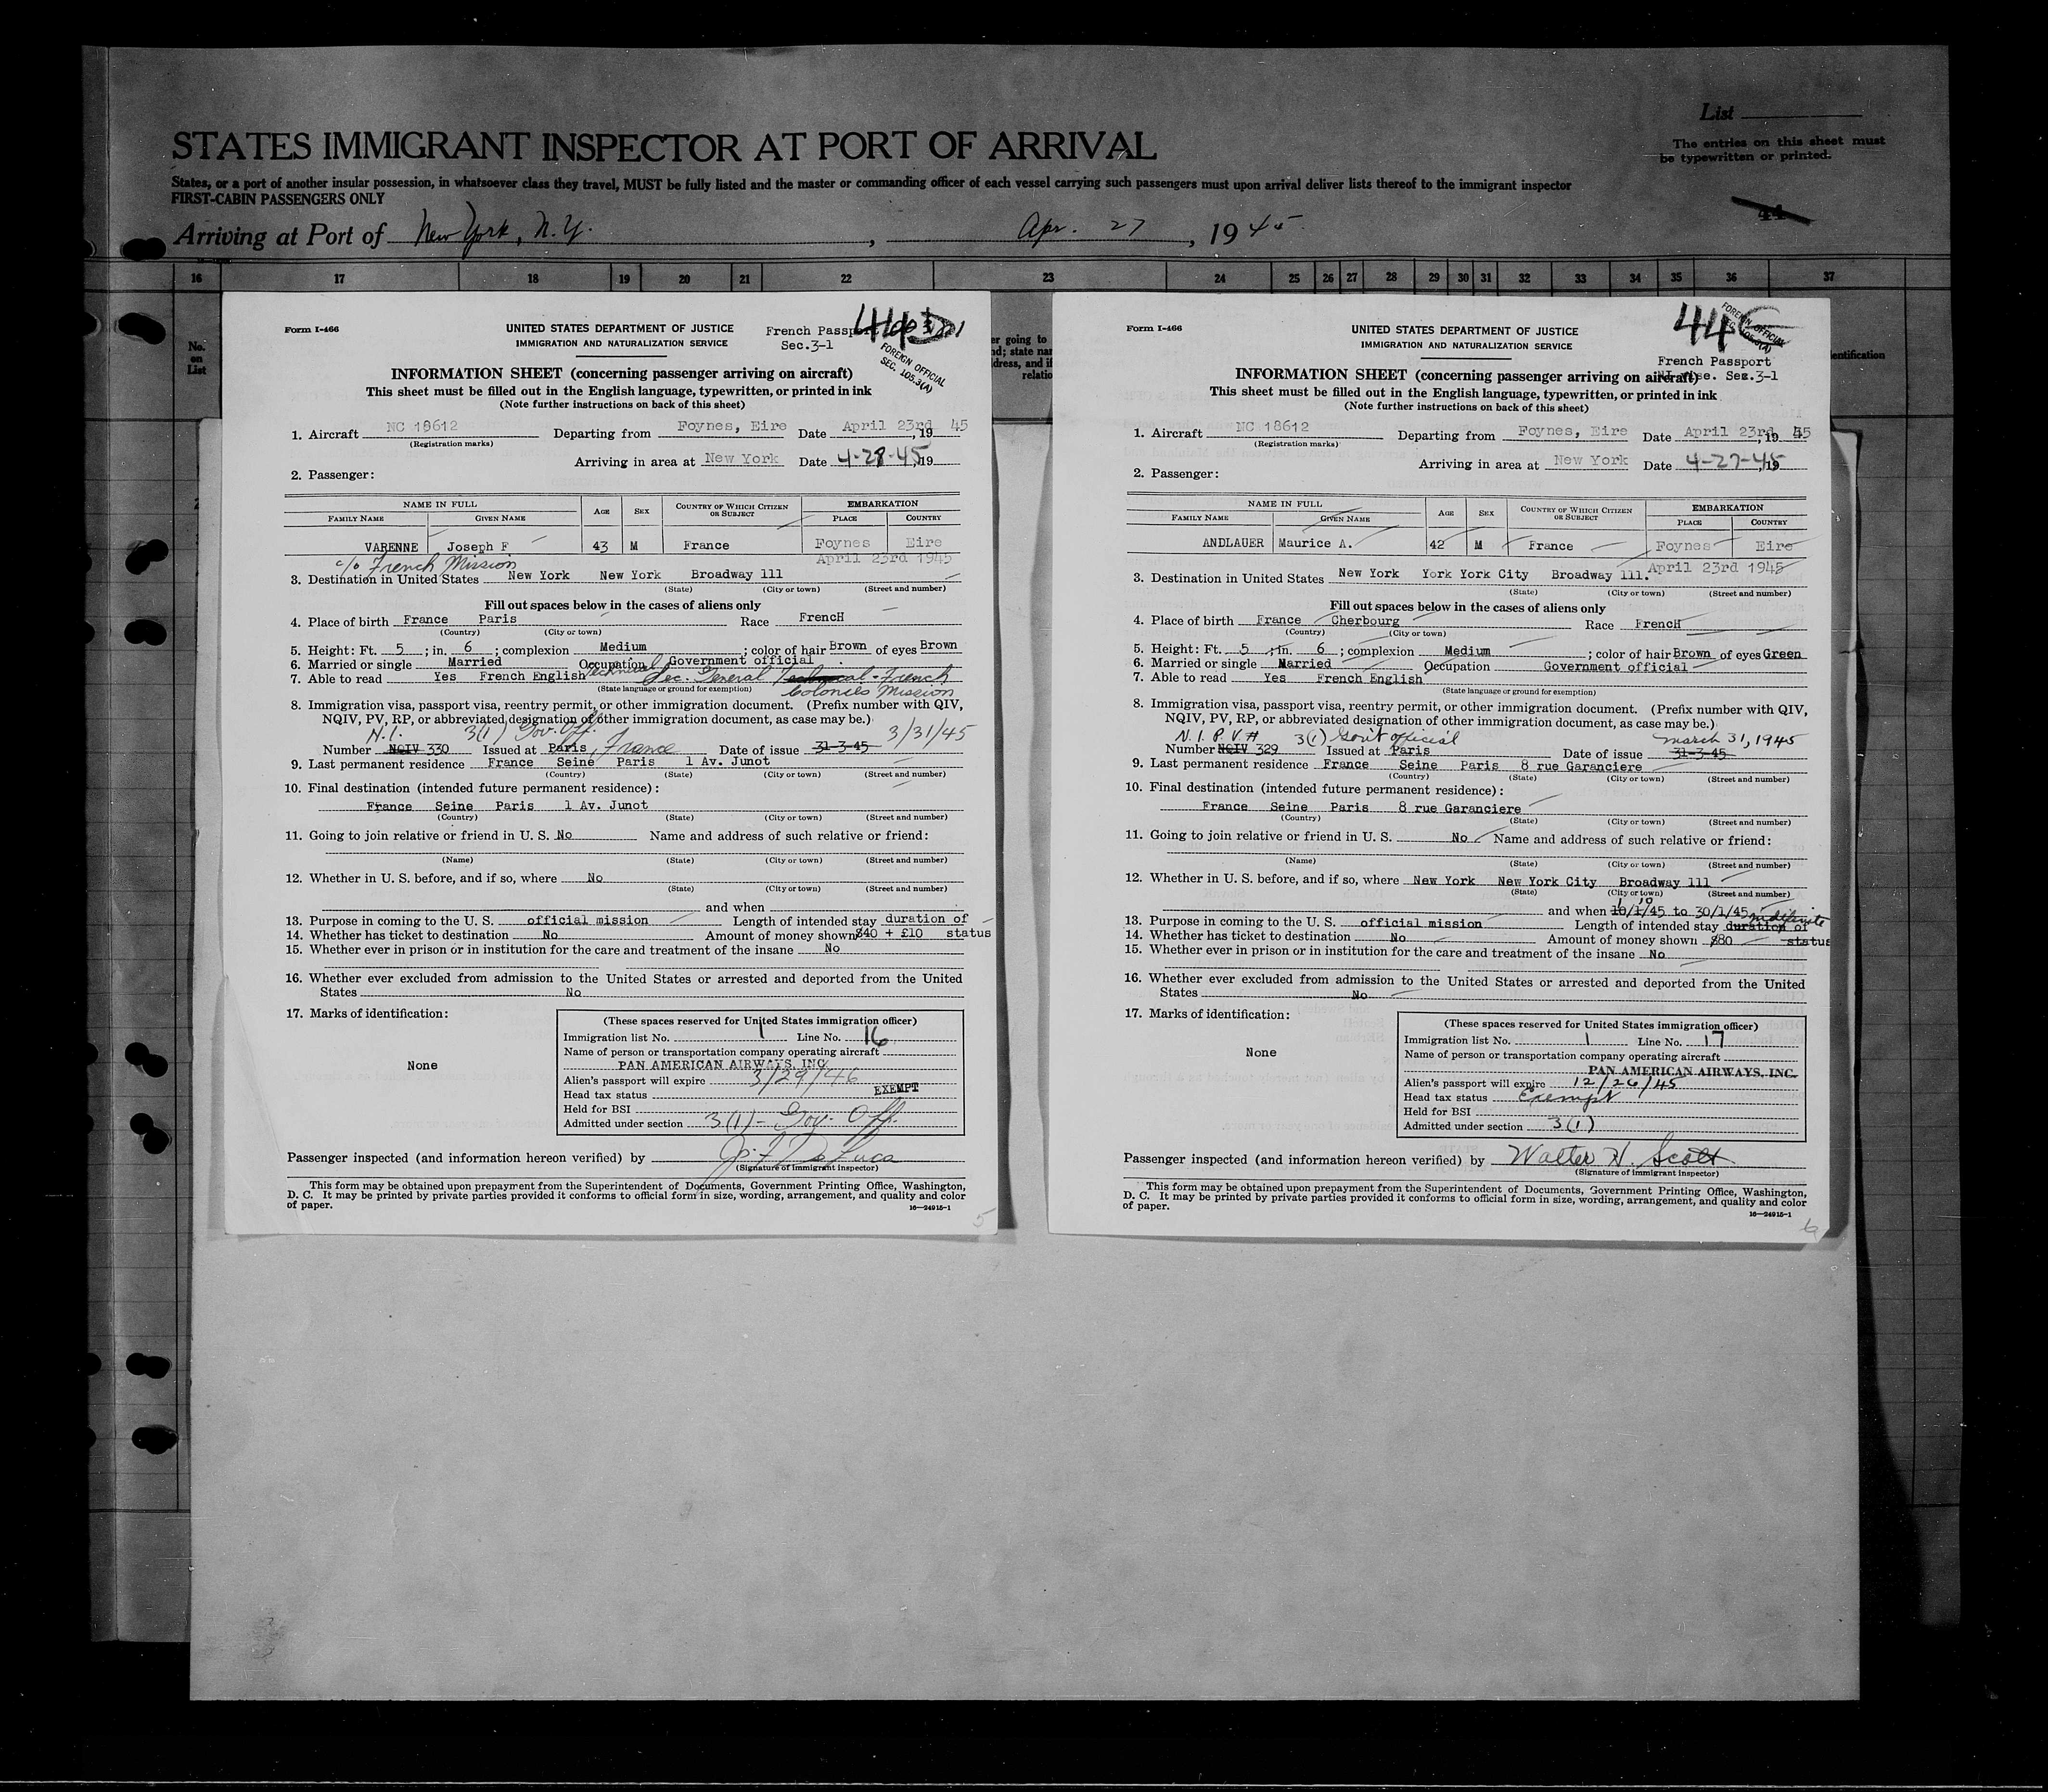 List
The entries on this sheet must
be typewritten or printed.
STATES IMMIGRANT INSPECTOR AT PORT OF ARRIVAL
States, or a port of another insular possession, in whatsoever class they travel, MUST be fully listed and the master or commanding officer of each vessel carrying such passengers must upon arrival deliver lists thereof to the immigrant inspector
FIRST-CABIN PASSENGERS ONLY
44
Arriving at Port of New York, N.Y. , Apr. 27 , 1945
16 17 18 19 20 21 22 23 24 25 26 27 28 29 30 31 32 33 34 35 36 37
No.
on
List
Form I-466
UNITED STATES DEPARTMENT OF JUSTICE
IMMIGRATION AND NATURALIZATION SERVICE
French Passport
Sec.3-1
FOREIGN OFFICIAL
SEC. 105.3(A)
INFORMATION SHEET (concerning passenger arriving on aircraft)
This sheet must be filled out in the English language, typewritten, or printed in ink
(Note further instructions on back of this sheet)
1. Aircraft NC 18612 Departing from Foynes, Eire Date April 23rd, 19 45
(Registration marks)
Arriving in area at New York Date 4-28-45, 19
2. Passenger:
NAME IN FULL AGE SEX COUNTRY OF WHICH CITIZEN OR SUBJECT EMBARKATION
FAMILY NAME GIVEN NAME PLACE COUNTRY
VARENNE Joseph F 43 M France Foynes Eire
April 23rd 1945
c/o French Mission
3. Destination in United States New York New York Broadway 111
(State) (City or town) (Street and number)
Fill out spaces below in the cases of aliens only
4. Place of birth France Paris Race FrencH
(Country) (City or town)
5. Height: Ft. 5 ; in. 6 ; complexion Medium ; color of hair Brown of eyes Brown
6. Married or single Married Occupation Government official .
7. Able to read Yes French English Technical Sec. General Technical - French
(State language or ground for exemption) Colonies Mission
8. Immigration visa, passport visa, reentry permit, or other immigration document. (Prefix number with QIV,
NQIV, PV, RP, or abbreviated designation of other immigration document, as case may be.)
N.I. 3(1) Gov. Off. 3/31/45
Number NQIV 330 Issued at Paris, France Date of issue 31-3-45
9. Last permanent residence France Seine Paris 1 Av. Junot
(Country) (State) (City or town) (Street and number)
10. Final destination (intended future permanent residence):
France Seine Paris 1 Av. Junot
(Country) (State) (City or town) (Street and number)
11. Going to join relative or friend in U. S. No Name and address of such relative or friend:
(Name) (State) (City or town) (Street and number)
12. Whether in U. S. before, and if so, where No
(State) (City or town) (Street and number)
and when
13. Purpose in coming to the U. S. official mission Length of intended stay duration of
14. Whether has ticket to destination No Amount of money shown $40 + £10 status
15. Whether ever in prison or in institution for the care and treatment of the insane No
16. Whether ever excluded from admission to the United States or arrested and deported from the United
States No
17. Marks of identification:
None
(These spaces reserved for United States immigration officer)
Immigration list No. 1 Line No. 16
Name of person or transportation company operating aircraft
PAN AMERICAN AIRWAYS, INC
Alien's passport will expire 3/29/46
Head tax status EXEMPT
Held for BSI
Admitted under section 3(1) - Gov. Off.
Passenger inspected (and information hereon verified) by
(Signature of immigrant inspector)
This form may be obtained upon prepayment from the Superintendent of Documents, Government Printing Office, Washington,
D. C. It may be printed by private parties provided it conforms to official form in size, wording, arrangement, and quality and color
of paper.
16—24915-1
5
Form I-466
UNITED STATES DEPARTMENT OF JUSTICE
IMMIGRATION AND NATURALIZATION SERVICE
44
FOREIGN OFFICIAL
French Passport
Sec.3-1
INFORMATION SHEET (concerning passenger arriving on aircraft)
This sheet must be filled out in the English language, typewritten, or printed in ink
(Note further instructions on back of this sheet)
1. Aircraft NC 18612 Departing from Foynes, Eire Date April 23rd, 19 45
(Registration marks)
Arriving in area at New York Date 4-27-45, 19
2. Passenger:
NAME IN FULL AGE SEX COUNTRY OF WHICH CITIZEN OR SUBJECT EMBARKATION
FAMILY NAME GIVEN NAME PLACE COUNTRY
ANDLAUER Maurice A. 42 M France Foynes Eire
April 23rd 1945
3. Destination in United States New York York York City Broadway 111.
(State) (City or town) (Street and number)
Fill out spaces below in the cases of aliens only
4. Place of birth France Cherbourg Race FrencH
(Country) (City or town)
5. Height: Ft. 5 ; in. 6 ; complexion Medium ; color of hair Brown of eyes Green
6. Married or single Married Occupation Government official
7. Able to read Yes French English
(State language or ground for exemption)
8. Immigration visa, passport visa, reentry permit, or other immigration document. (Prefix number with QIV,
NQIV, PV, RP, or abbreviated designation of other immigration document, as case may be.)
N.I.P.V.# 3(1) Gov't official March 31, 1945
Number NQIV 329 Issued at Paris Date of issue 31-3-45
9. Last permanent residence France Seine Paris 8 rue Garanciere
(Country) (State) (City or town) (Street and number)
10. Final destination (intended future permanent residence):
France Seine Paris 8 rue Garanciere
(Country) (State) (City or town) (Street and number)
11. Going to join relative or friend in U. S. No Name and address of such relative or friend:
(Name) (State) (City or town) (Street and number)
12. Whether in U. S. before, and if so, where New York New York City Broadway 111
(State) (City or town) (Street and number)
1 10
and when 10/1/45 to 30/1/45 indefinite
13. Purpose in coming to the U. S. official mission Length of intended stay duration of
14. Whether has ticket to destination No Amount of money shown $80 status
15. Whether ever in prison or in institution for the care and treatment of the insane No
16. Whether ever excluded from admission to the United States or arrested and deported from the United
States No
17. Marks of identification:
None
(These spaces reserved for United States immigration officer)
Immigration list No. 1 Line No. 17
Name of person or transportation company operating aircraft
PAN AMERICAN AIRWAYS, INC.
Alien's passport will expire 12/26/45
Head tax status Exempt
Held for BSI
Admitted under section 3(1)
Passenger inspected (and information hereon verified) by Walter H. Scott
(Signature of immigrant inspector)
This form may be obtained upon prepayment from the Superintendent of Documents, Government Printing Office, Washington,
D. C. It may be printed by private parties provided it conforms to official form in size, wording, arrangement, and quality and color
of paper.
16—24915-1
6